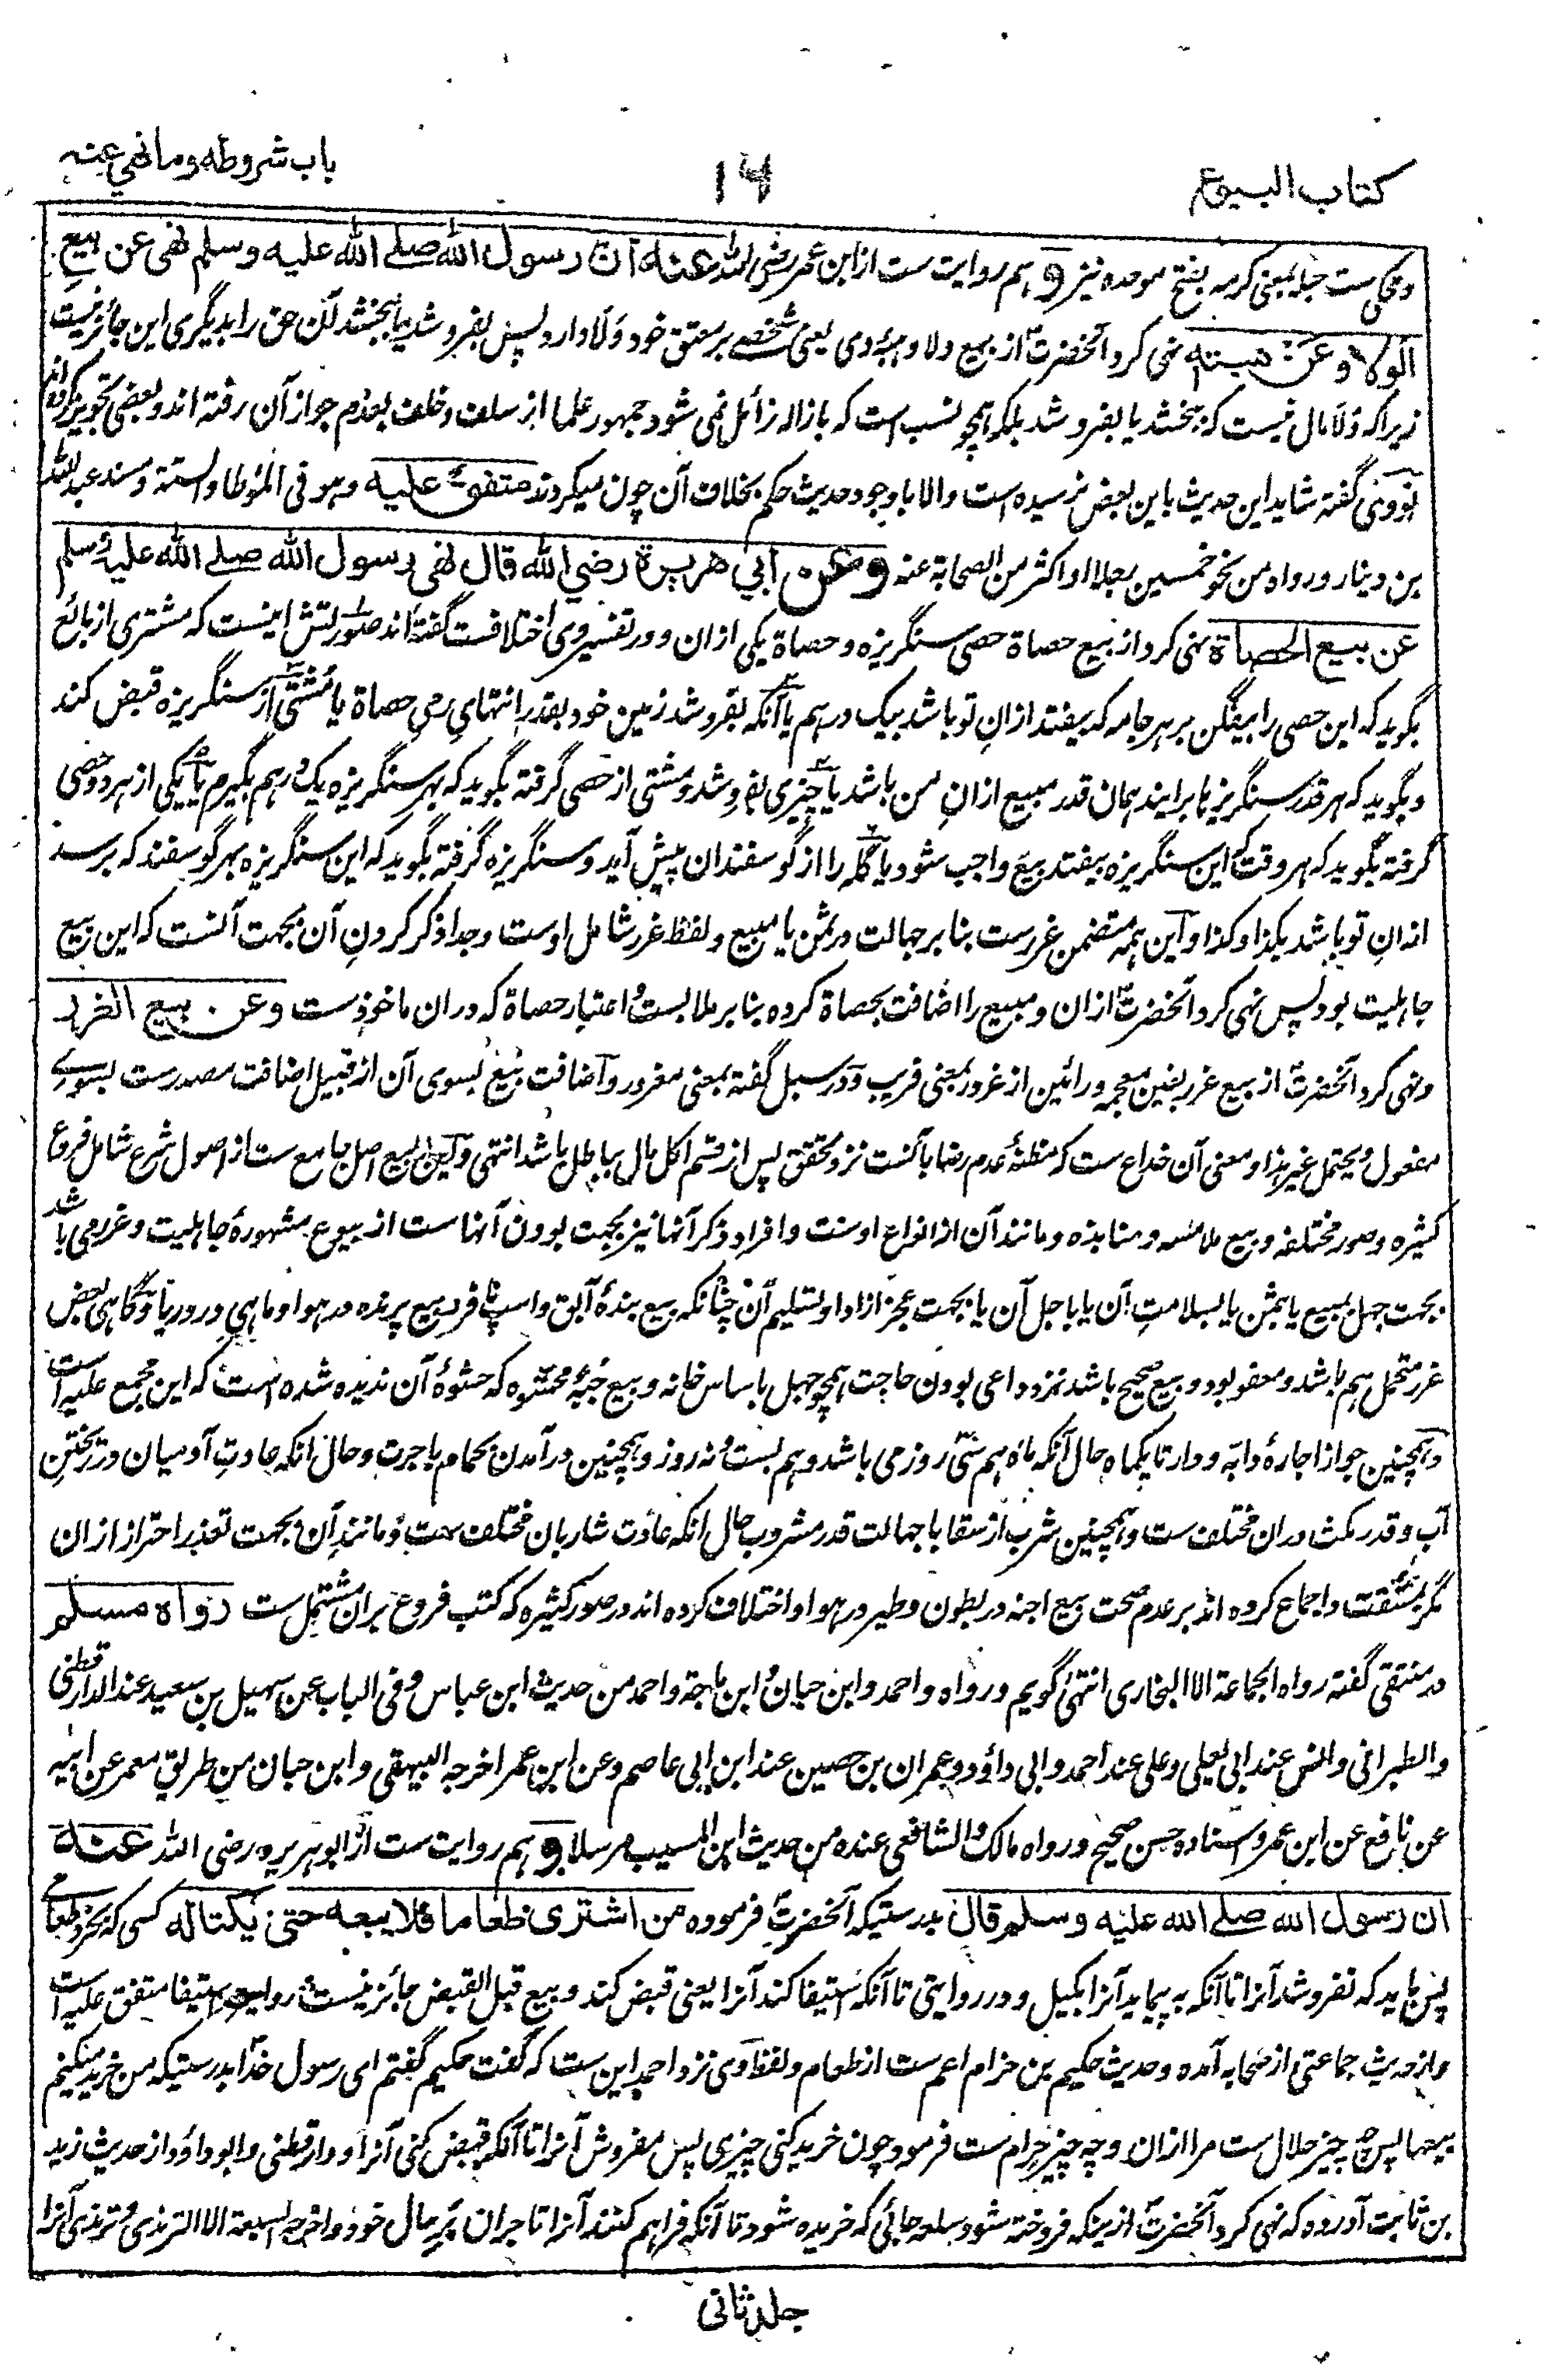 کتاب البیوع
۱۶
باب شروطه وما نهي عنه
ومحکی ست حبله بمعنی کرمه بفتح موحده نیز و هم روایت ست از ابن عمر رضی الله عنه ان رسول الله صلے الله علیه وسلم نهی عن بیع
الولاء وعن هبته نهی کرد آنحضرت از بیع ولا و هبهٔ وی یعنی شخصے بر معتق خود ولا دارد پس بفروشد یا ببخشد آن حق را بدیگری این جائز نیست
زیراکه ولا مال نیست که ببخشد یا بفروشد بلکه همچو نسب است که بازاله زائل نمی شود جمهور علما از سلف و خلف بعدم جواز آن رفته اند و بعضی تجویز کرده اند
نووی گفته شاید این حدیث باین بعض نرسیده است والا با وجود حدیث حکم بخلاف آن چون میکردند متفق علیه و هو فی الموطا والستة ومسند عبدالله
بن دینار ورواه من نحو خمسین رجلا او اکثر من الصحابة عنه وعن أبي هريرة رضي الله قال نهی رسول الله صلے الله علیه وسلم
عن بیع الحصاة نهی کرد از بیع حصاة حصی سنگریزه و حصاة یکی ازان و در تفسیر وی اختلافست گفته اند صورتش اینست که مشتری از بائع
بگوید که این حصی را بیفگن بر هر جامه که بیفتد ازانِ تو باشد بیک درهم یا آنکه بفروشد زمین خود بقدر انتهایِ رمیِ حصاة یا مشتی از سنگریزه قبض کند
و بگوید که هر قدر سنگریزها برایند همان قدر مبیع ازانِ من باشد یا چیزی بفروشد و مشتی از حصی گرفته بگوید که بهر سنگریزه یک درهم بگیرم یا یکی از هر دو حصی
گرفته بگوید که هر وقت که این سنگریزه بیفتد بیع واجب شود یا گله را از گوسفندان پیش آید و سنگریزه گرفته بگوید که این سنگریزه بهر گوسفند که برسد
ازانِ تو باشد بکذا وکذا و این همه متضمن غررست بنا بر جهالت در ثمن یا مبیع و لفظ غرر شامل اوست و جدا ذکر کردنِ آن بجهت آنست که این بیع
جاهلیت بود پس نهی کرد آنحضرت ازان و مبیع را اضافت بحصاة کرده بنا بر ملابست و اعتبار حصاة که دران ماخوذست وعن بیع الغرر
و نهی کرد آنحضرت از بیع غرر بغین معجمه و رائین از غرور بمعنی فریب و در سبل گفته بمعنی مغرور و اضافت بیع بسوی آن از قبیل اضافت مصدرست بسوے
مفعول و یحتمل غیر هذا و معنی آن خداع ست که مظنهٔ عدم رضا بآنست نزد تحقق پس از قسم اکل مال بباطل باشد انتهی و این بیع اصل جامع ست از اصول شرع شامل فروع
کثیره و صور مختلفه و بیع ملامسه و منابذه و مانند آن از انواع اوست و افراد ذکر آنها نیز بجهت بودن آنهاست از بیوع مشهورهٔ جاهلیت و غرر می باشد
بجهت جهل بمبیع یا بثمن یا بسلامتِ آن یا باجل آن یا بجهت عجز از ادا و تسلیم آن چنانکه بیع بندهٔ آبق و اسپ نافر و بیع پرنده در هوا و ماهی در دریا و گاهی بعض
غرر متحمل هم باشد و معفو بود و بیع صحیح باشد نزد داعی بودن حاجت همچو جهل باساس خانه و بیع جبهٔ محشوه که حشوهٔ آن ندیده شده است که این مجمع علیه است
و همچنین جواز اجارهٔ دابه و دار تا یکماه حال آنکه ماه هم سی روز می باشد و هم بست و نه روز و همچنین درآمدن بحمام باجرت و حال انکه عادتِ آدمیان در ریختنِ
آب و قدر مکث دران مختلف ست و همچنین شرب از سقا با جهالت قدر مشروب حال انکه عادت شاربان مختلف ست و مانند آن بجهت تعذر احتراز ازان
مگر بمشقت و اجماع کرده اند بر عدم صحت بیع اجنه در بطون و طیر در هوا و اختلاف کرده اند در صور کثیره که کتب فروع بران مشتمل ست رواه مسلم
در منتقی گفته رواه الجماعة الا البخاری انتهی گویم و رواه و احمد وابن حبان و ابن ماجة واحمد من حدیث ابن عباس وفی الباب عن سهیل بن سعید عند الدارقطنی
والطبرانی وانس عند ابی یعلی وعلی عند احمد وابی داؤد وعمران بن حصین عند ابن ابی عاصم وعن ابن عمر اخرجه البیهقی وابن حبان من طریق معمر عن ابیه
عن نافع عن ابن عمر واسناده حسن صحیح ورواه مالک والشافعی عنده من حدیث ابن المسیب مرسلا و هم روایت ست از ابوهریره رضی الله عنه
ان رسول الله صلے الله علیه وسلم قال بدرستیکه آنحضرت فرموده من اشتری طعاما فلا یبعه حتی یکتاله کسی که بخرد طعامے
پس باید که نفروشد آنرا تا آنکه به پیماید آنرا بکیل و در روایتی تا آنکه استیفا کند آنرا یعنی قبض کند و بیع قبل القبض جائز نیست و روایت استیفا متفق علیه است
و از حدیث جماعتی از صحابه آمده و حدیث حکیم بن حزام اعم ست از طعام و لفظ وی نزد احمد این ست که گفت حکیم گفتم ای رسول خدا بدرستیکه من خرید میکنم
بیعها پس چه چیز حلال ست مرا ازان و چه چیز حرام ست فرمود چون خرید کنی چیزی پس مفروش آنرا تا آنکه قبض کنی آنرا و دارقطنی و ابوداؤد از حدیث زید
بن ثابت آورده که نهی کرد آنحضرت ازینکه فروخته شود سلعه جائی که خریده شود تا آنکه فراهم کنند آنرا تاجران بَرِحال خود و اخرجه السبعة الا الترمذی و ترمذی آنرا
جلد ثانی